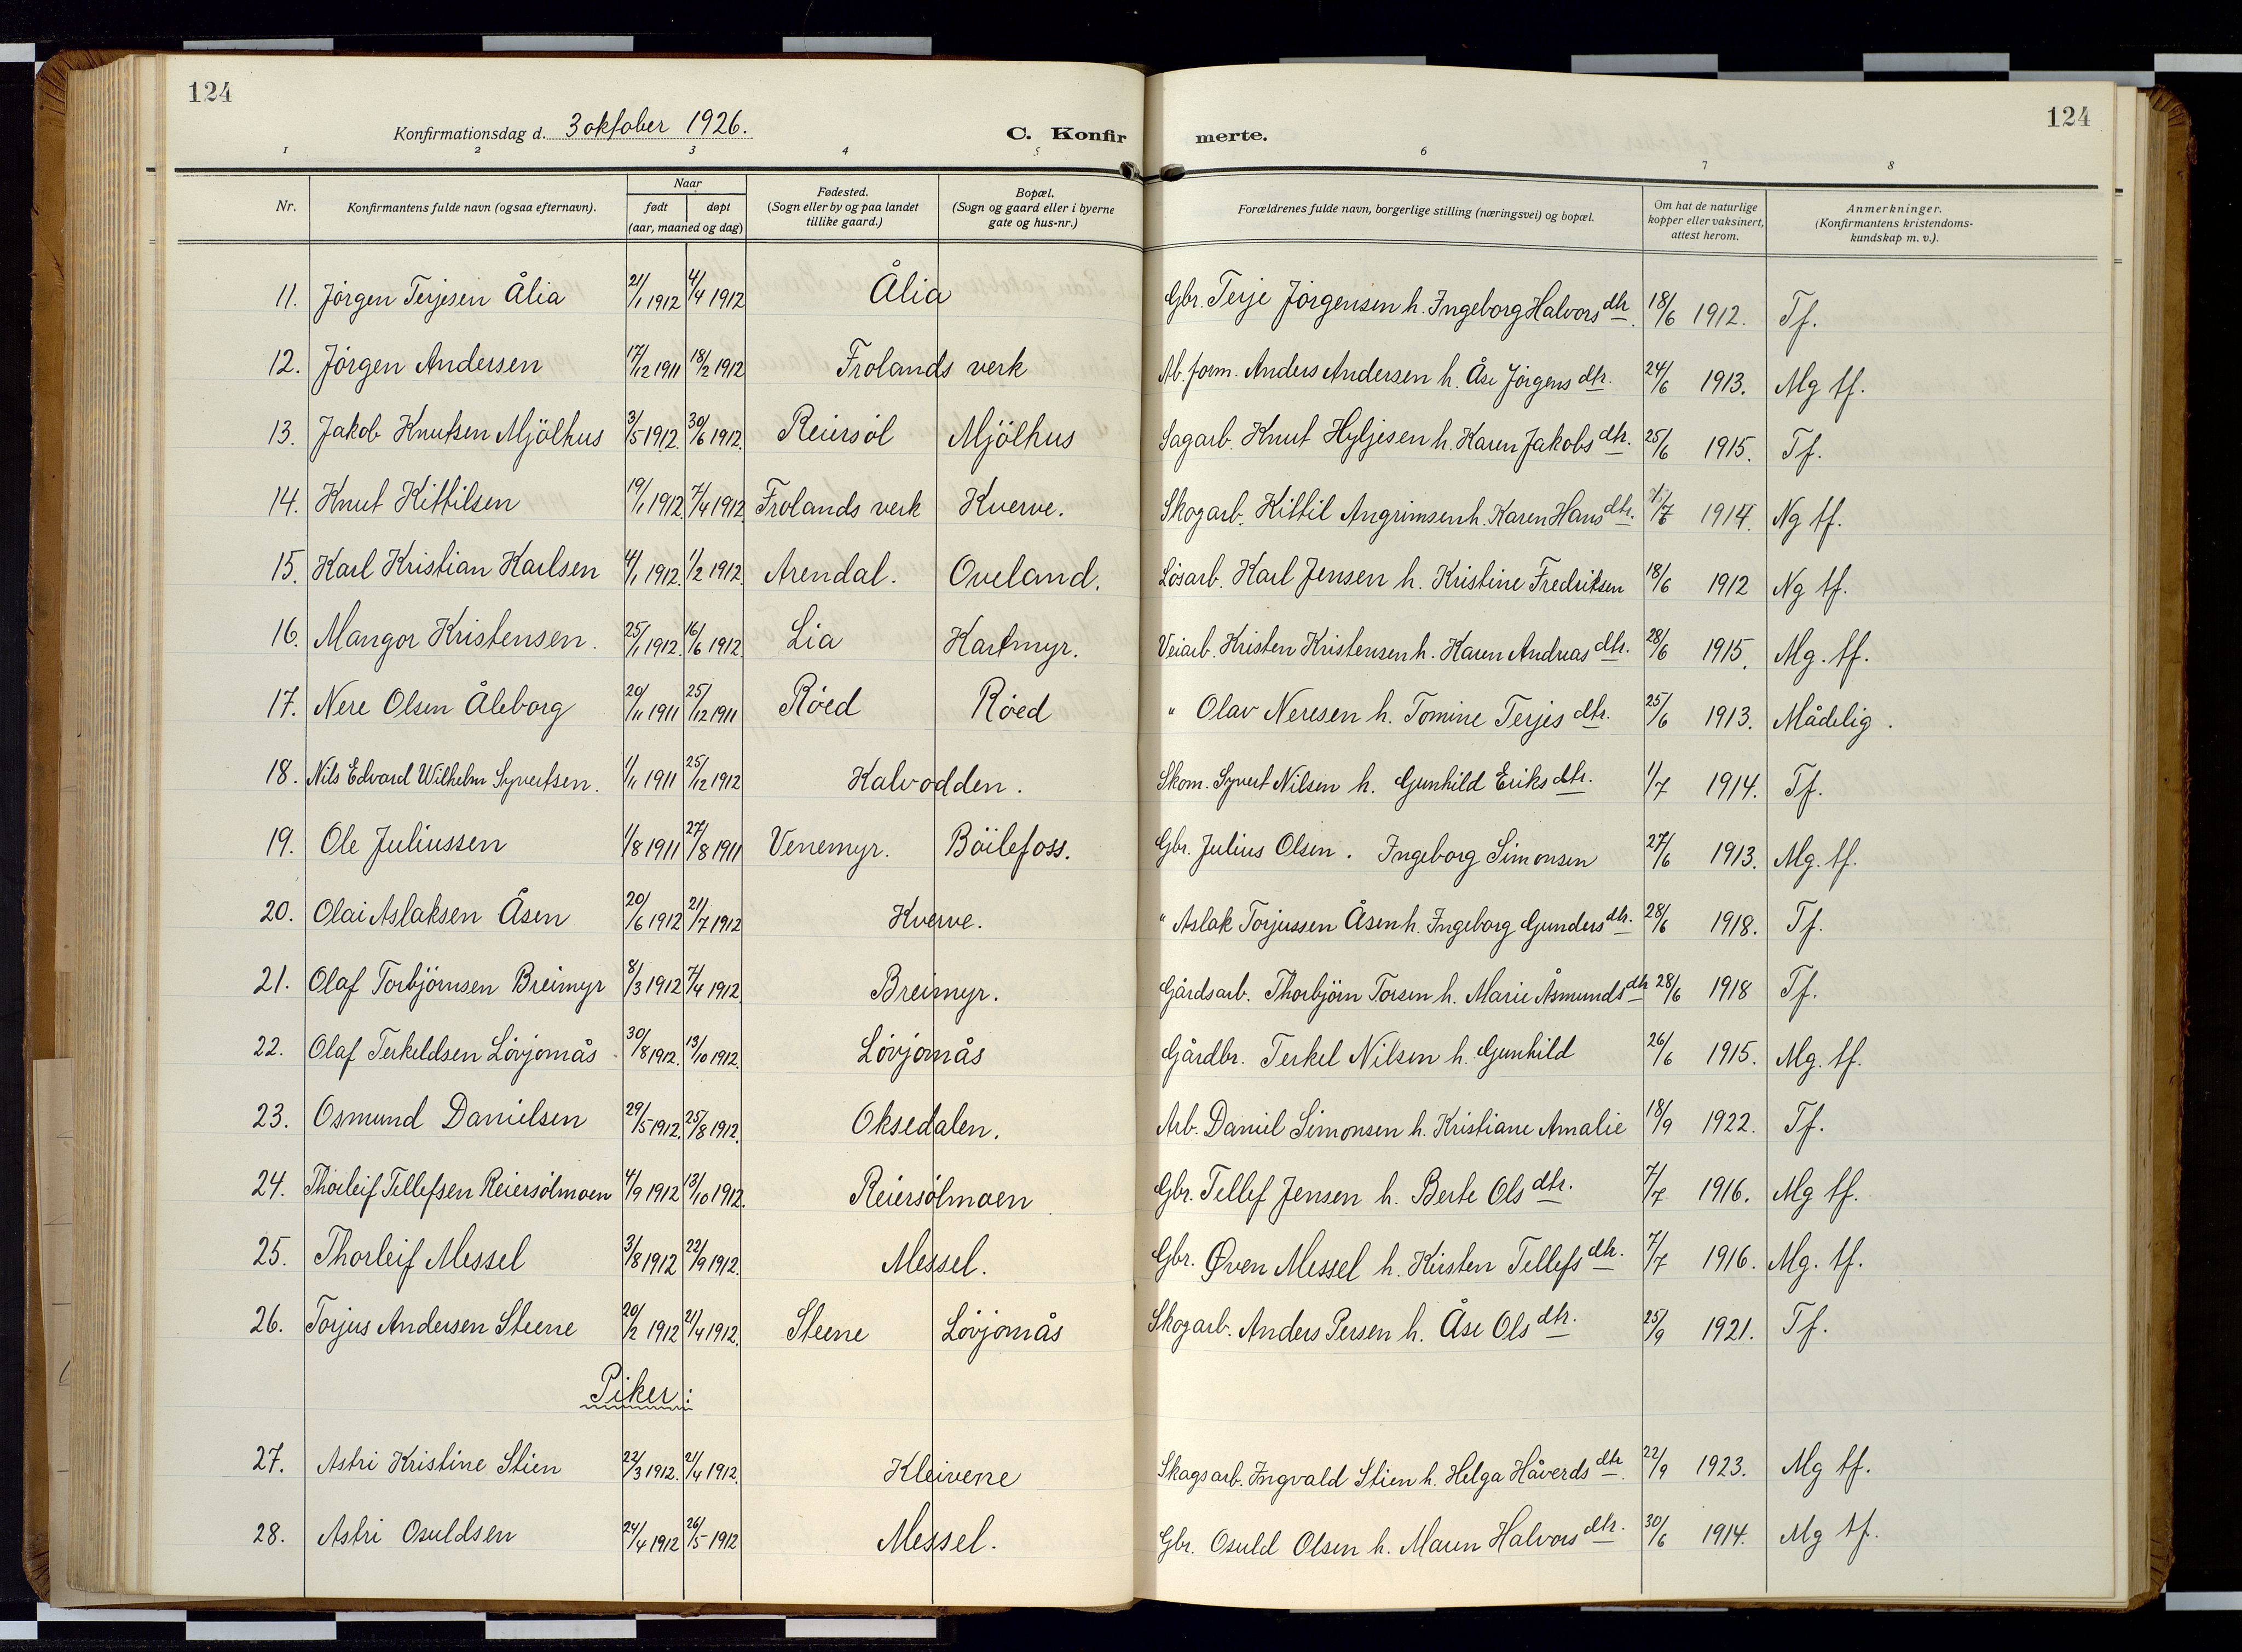 124
124
Konfirmationsdag d. 3 oktober 1926.
C. Konfirmerte.
1 2 3 4 5 6 7 8
Nr. | Konfirmantens fulde navn (ogsaa efternavn). | Naar født døpt (aar, maaned og dag) | Fødested. (Sogn eller by og paa landet tillike gaard.) | Bopæl. (Sogn og gaard eller i byerne gate og hus-nr.) | Forældrenes fulde navn, borgerlige stilling (næringsvei) og bopæl. | Om hat de naturlige kopper eller vaksinert, attest herom. | Anmerkninger. (Konfirmantens kristendoms-kundskap m. v.).
11. Jörgen Terjesen Ålia 21/1 1912 4/4 1912 Ålia Gbr. Terje Jörgensen h. Ingeborg Halvorsdtr. 18/6 1912. Tf.
12. Jörgen Andersen 17/12 1911 18/2 1912 Frolands verk Ab. form. Anders Andersen h. Åse Jörgensdtr. 24/6 1913. Mg tf.
13. Jakob Knutsen Mjölhus 3/5 1912. 30/6 1912. Reiersöl Mjölhus Sagarb. Knut Hyljesen h. Karen Jakobsdtr. 25/6 1915. Tf.
14. Knut Kittilsen 19/1 1912. 7/4 1912. Frolands verk Kverve. Skogarb. Kittil Angrimsen h. Karen Hansdtr. 1/7 1914. Ng tf.
15. Karl Kristian Karlsen 4/1 1912. 1/2 1912. Arendal. Oveland. Lösarb. Karl Jensen h. Kristine Fredriksen 18/6 1912 Ng tf.
16. Mangor Kristensen. 25/1 1912. 16/6 1912 Lia Hartmyr. Veiarb. Kristen Kristensen h. Karen Andreasdtr. 28/6 1915. Mg. tf.
17. Nere Olsen Åleborg 20/11 1911 25/12 1911 Röed Röed " Olav Neresen h. Tomine Terjesdtr. 25/6 1913. Mådelig.
18. Nils Edvard Wilhelm Syvertsen. 1/11 1911 25/12 1912 Kalvodden. Skom. Syvert Nilsen h. Gunhild Eriksdtr. 1/7 1914. Tf.
19. Ole Juliussen 1/8 1911 27/8 1911 Venemyr. Böilefoss. Gbr. Julius Olsen. Ingeborg Simonsen 27/6 1913. Mg. tf.
20. Olai Aslaksen Åsen 20/6 1912 21/7 1912 Kverve. " Aslak Torjussen Åsen h. Ingeborg Gundersdtr. 28/6 1918. Tf.
21. Olaf Torbjörnsen Breimyr 8/3 1912 7/4 1912 Breimyr. Gårdsarb. Thorbjörn Torsen h. Marie Åsmundsdtr 28/6 1918 Tf.
22. Olaf Terkeldsen Lövjomås 30/8 1912. 13/10 1912. Lövjomås Gårdbr. Terkel Nilsen h. Gunhild 26/6 1915. Mg. tf.
23. Osmund Danielsen 29/5 1912. 25/8 1912. Oksedalen. Arb. Daniel Simonsen h. Kristiane Amalie 18/9 1922. Tf.
24. Thorleif Tellefsen Reiersölmoen 4/9 1912 13/10 1912. Reiersölmoen Gbr. Tellef Jensen h. Berte Olsdtr. 7/7 1916. Mg tf.
25. Thorleif Messel 3/8 1912 22/9 1912. Messel. Gbr. Øven Messel h. Kirsten Tellefsdtr. 7/7 1916. Mg. tf.
26. Torjus Andersen Steene 20/2 1912 21/4 1912. Steene Lövjomås Skogarb. Anders Persen h. Åse Olsdtr. 25/9 1921. Tf.
Piker:
27. Astri Kristine Stien 22/3 1912. 21/4 1912. Kleivene Skogsarb. Ingvald Stien h. Helga Håverdsdtr. 22/9 1923. Mg tf.
28. Astri Osuldsen 24/4 1912 26/5 1912 Messel. Gbr. Osuld Olsen h. Maren Halvorsdtr. 30/6 1914. Mg tf.